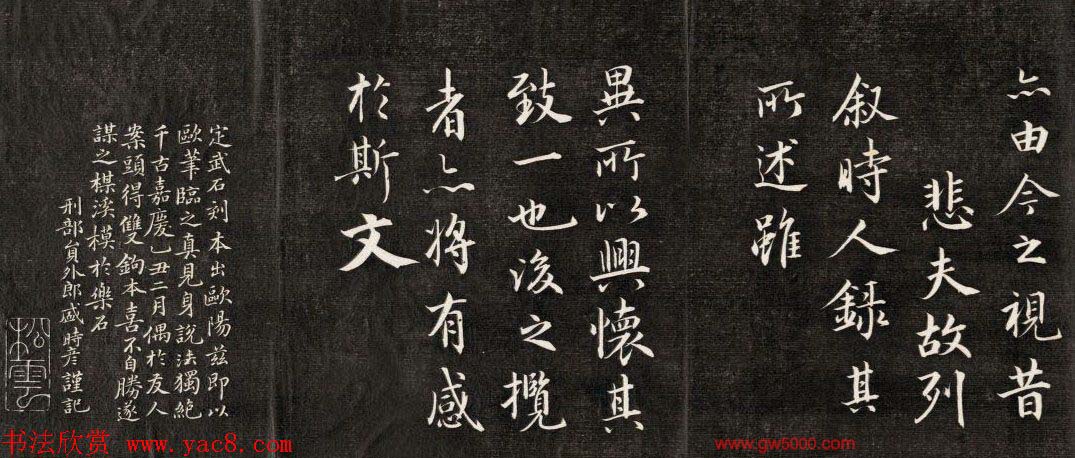 亦由今之視昔
悲夫故列
叙時人錄其
所述雖
異所以興懷其
致一也後之攬
者亦將有感
於斯文
定武石刻本出歐陽茲即以
歐筆臨之真見身說法獨絕
千古嘉慶乙丑二月偶於友人
案頭得雙鉤本喜不自勝遂
謀之楳溪模於樂石
刑部員外郎盛時彦謹記
松雪
书法欣赏 www.yac8.com
www.gw5000.com